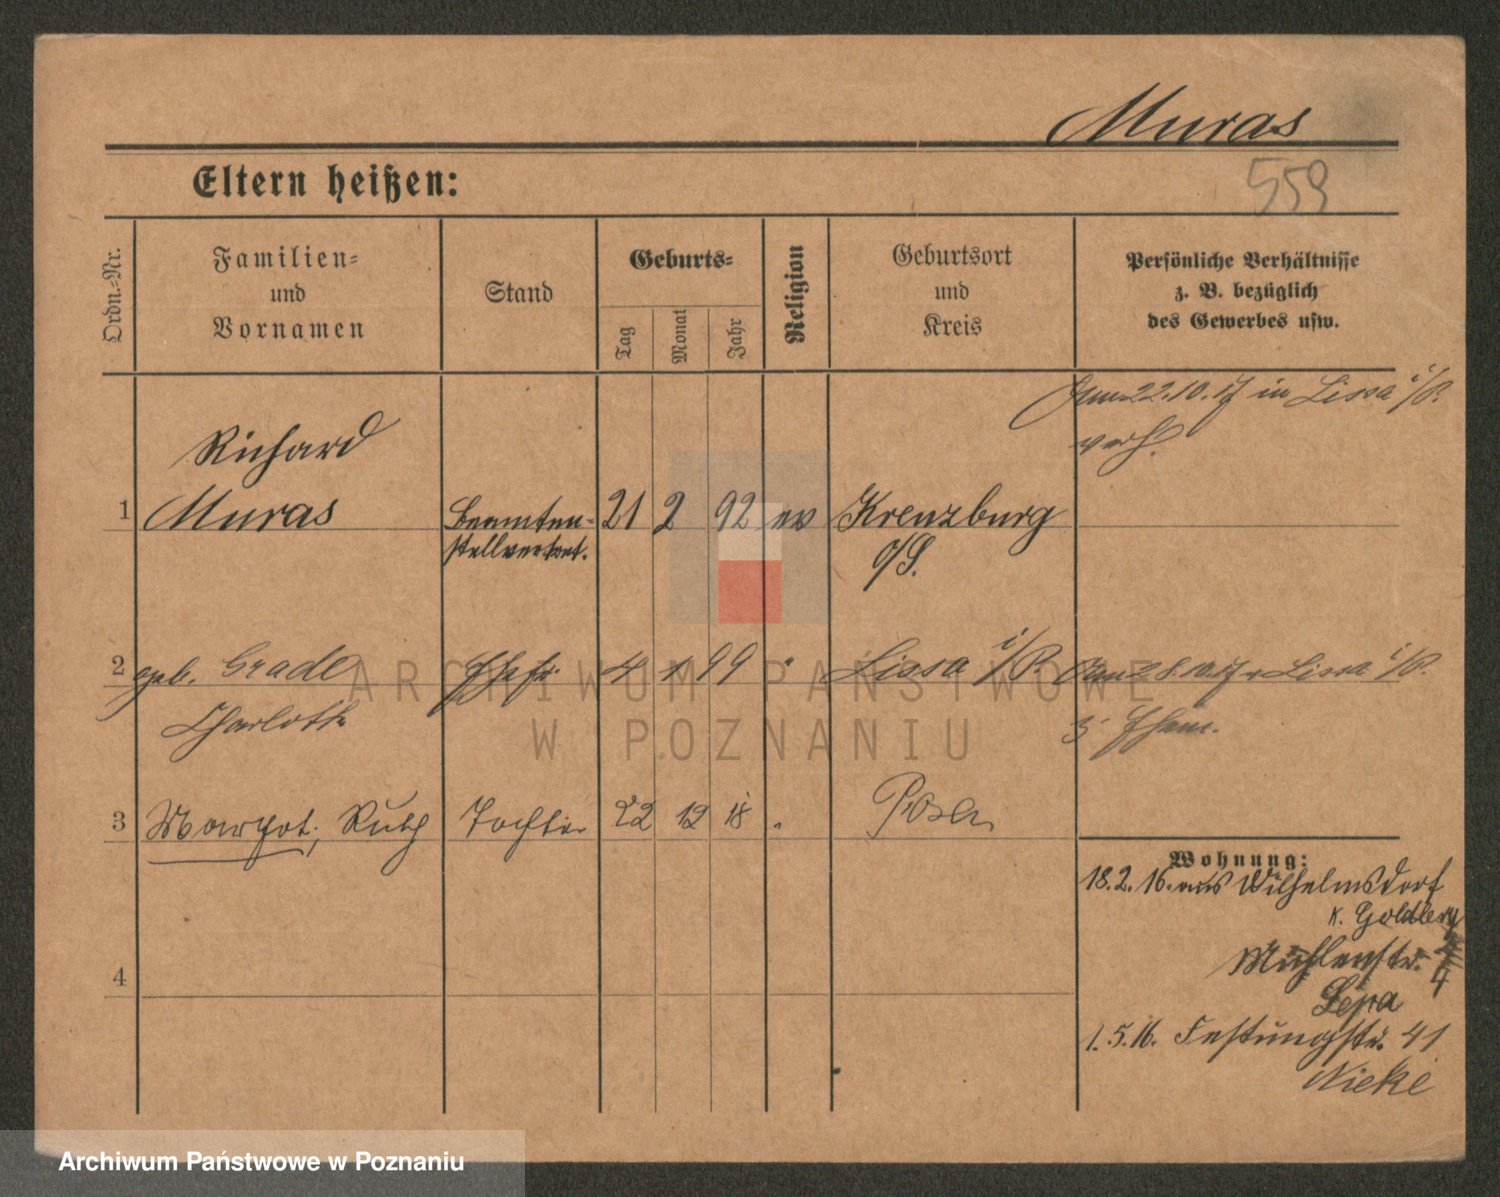 Muras
559
Eltern heißen:
Ordn.-Nr.
Familien-
und
Vornamen
Stand
Geburts-
Tag
Monat
Jahr
Religion
Geburtsort
und
Kreis
Persönliche Verhältnisse
z. B. bezüglich
des Gewerbes usw.
22.10.17 in Lissa i/P.
verh.
Richard
1 Muras Beamten- 21 2 92 ev Kreuzburg
stellvertret. O/S.
2 geb. Grade Ehefr. 4 1 99 " Lissa i/P. Lissa i/P.
Charlotte
3 Margot, Ruth Tochter 22 12 18 " Posen
Wohnung:
18.2.16. aus Wilhelmsdorf
K. Goldberg
Mühlenstr. 4
4
1.5.16. Festungstr. 41
Nieke
ARCHIWUM PAŃSTWOWE
W POZNANIU
Archiwum Państwowe w Poznaniu